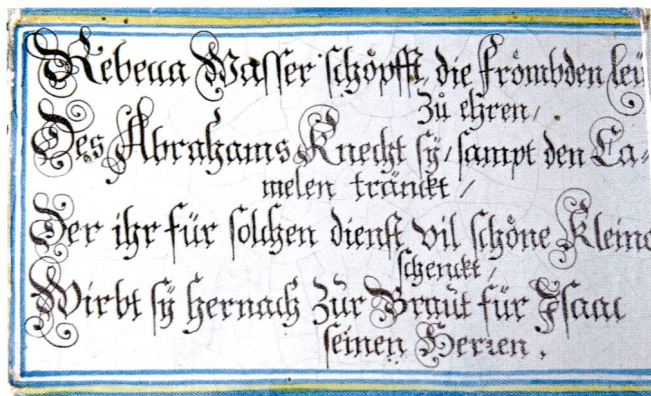 Rebecca Wasser schöpfft, die frömbden leü
Zů ehren/
Des Abrahams Knecht sÿ/ sampt den Ca-
melen tränckt/
Der ihr für solchen dienst vil schöne Kleino
schenckt/
Wirbt sÿ hernach Zur Braut für Isaac
seinen Herren.